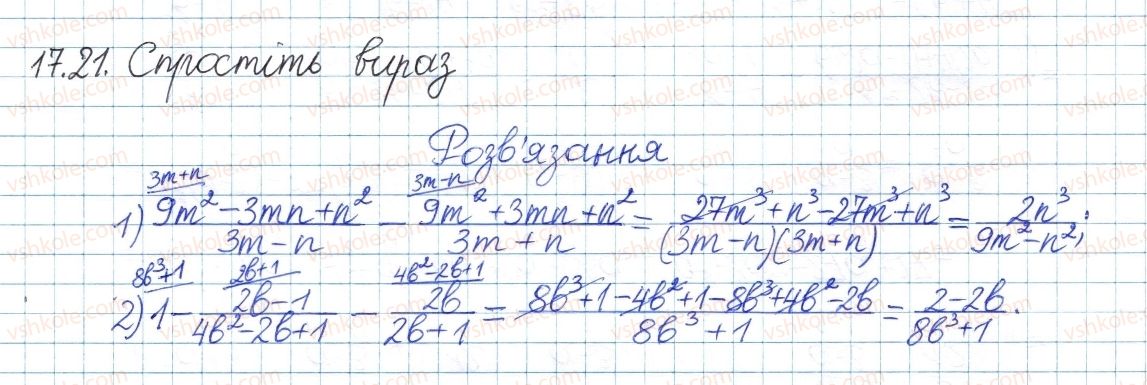 17.21. Спростіть вираз
Розв'язання
1) (9m² - 3mn + n²)/(3m - n) [3m+n] - (9m² + 3mn + n²)/(3m + n) [3m-n] = (27m³ + n³ - 27m³ + n³)/((3m - n)(3m + n)) = 2n³/(9m² - n²);
2) 1 [8b³+1] - (2b - 1)/(4b² - 2b + 1) [2b+1] - 2b/(2b + 1) [4b²-2b+1] = (8b³ + 1 - 4b² + 1 - 8b³ + 4b² - 2b)/(8b³ + 1) = (2 - 2b)/(8b³ + 1).